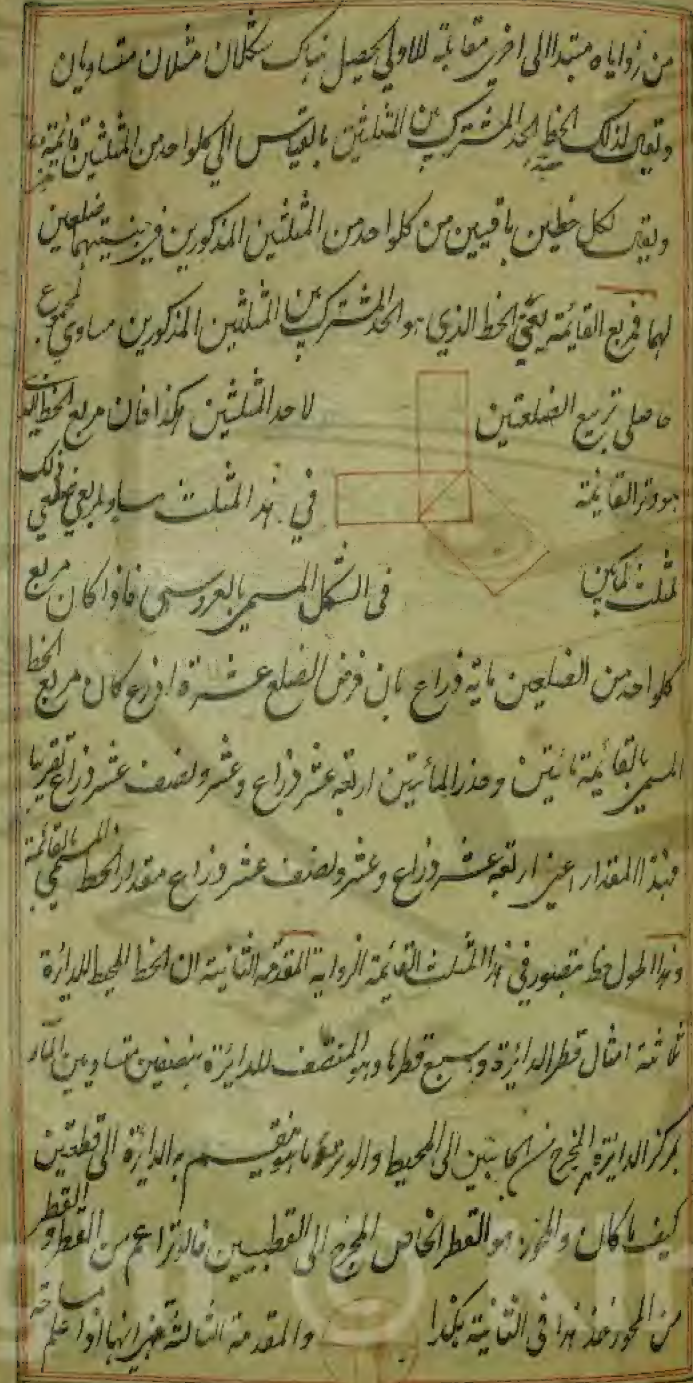 من زواياه مبتدا الى اخرى مقابلة للاولى يحصل هناك شكلان مثلثان متساويان
ويقال لذلك الخط الحد المشترك بين المثلثين بالقياس الى كلواحد من المثلثين قائمة
ويقال لكل خطين باقيين من كلواحد من المثلثين المذكورين ضلعين
لهما فمربع القائمة يعنى الخط الذي هو الحد المشترك بين المثلثين المذكورين مساوي لمجموع
حاصلى تربيع الضلعين لاحد المثلثين هكذا فان مربع الخط الذي
هو وتر القايمة في هذا المثلث مساو لمربعي ضلعي ذلك
المثلث كما بين في الشكل المسمى بالعروسي فاذا كان مربع
كلواحد من الضلعين ماية ذراع بان فرض الضلع عشرة اذرع كان مربع الخط
المسمى بالقائمة مائتين وجذر المأتين اربعة عشر ذراع وعشر ونصف عشر ذراع تقريبا
فهذا المقدار اعنى اربعة عشر ذراع وعشر ونصف عشر ذراع مقدار الخط المسمى بالقائمة
وهذا اطول خط يتصور في هذا المثلث القائمة الزواية المقدمة الثانية ان الخط المحيط للدائرة
ثلاثة امثال قطر الدائرة وسبع قطرها وهو المنصف للدائرة بنصفين متساويين المار
بمركز الدائرة المخرج من الجانبين الى المحيط والوتر ما هو يقسم به الدائرة الى قطعتين
كيف ما كان والمحور هو القطر الخاص المخرج الى القطبين فالوتر اعم من القطر والقطر
من المحور فخذ هذا في الثانية هكذا والمقدمة الثالثة هى انها اذا علم مساحة